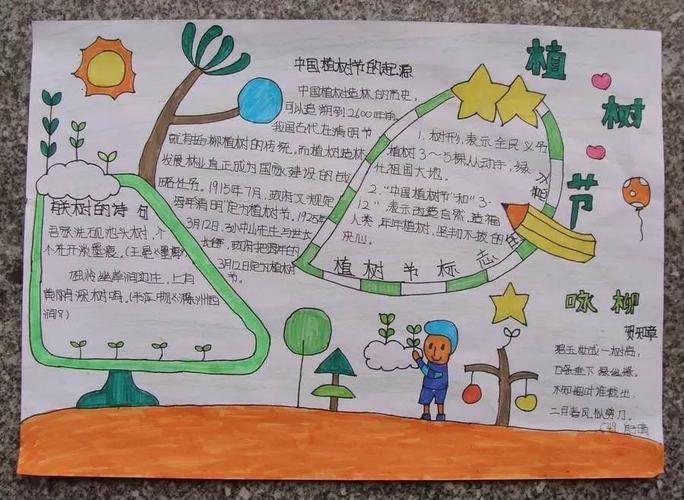 植树节
中国植树节的起源
中国植树造林的历史,
可以追溯到2600年前,
我国古代在清明节
就有插柳植树的传统。而植树造林
发展林业真正成为国家建设的战
略地位。1915年7月,政府又规定
将每年清明定为植树节。1925年
3月12日,孙中山先生与世长
辞,政府把每年的
3月12日定为植树
节。
1.树形,表示全民义务
植树3~5棵,人人动手,绿
化祖国大地。
2.“中国植树节”和“3·
12”,表示改造自然,造福
人类,年年植树,坚韧不拔的
决心。
植树节标志
有关树的诗句
吾家洗砚池头树,个
个花开淡墨痕。(王冕《墨梅》)
独怜幽草涧边生,上有
黄鹂深树鸣。(韦应物《滁州西
涧》)
咏柳
贺知章
碧玉妆成一树高,
万条垂下绿丝绦。
不知细叶谁裁出,
二月春风似剪刀。